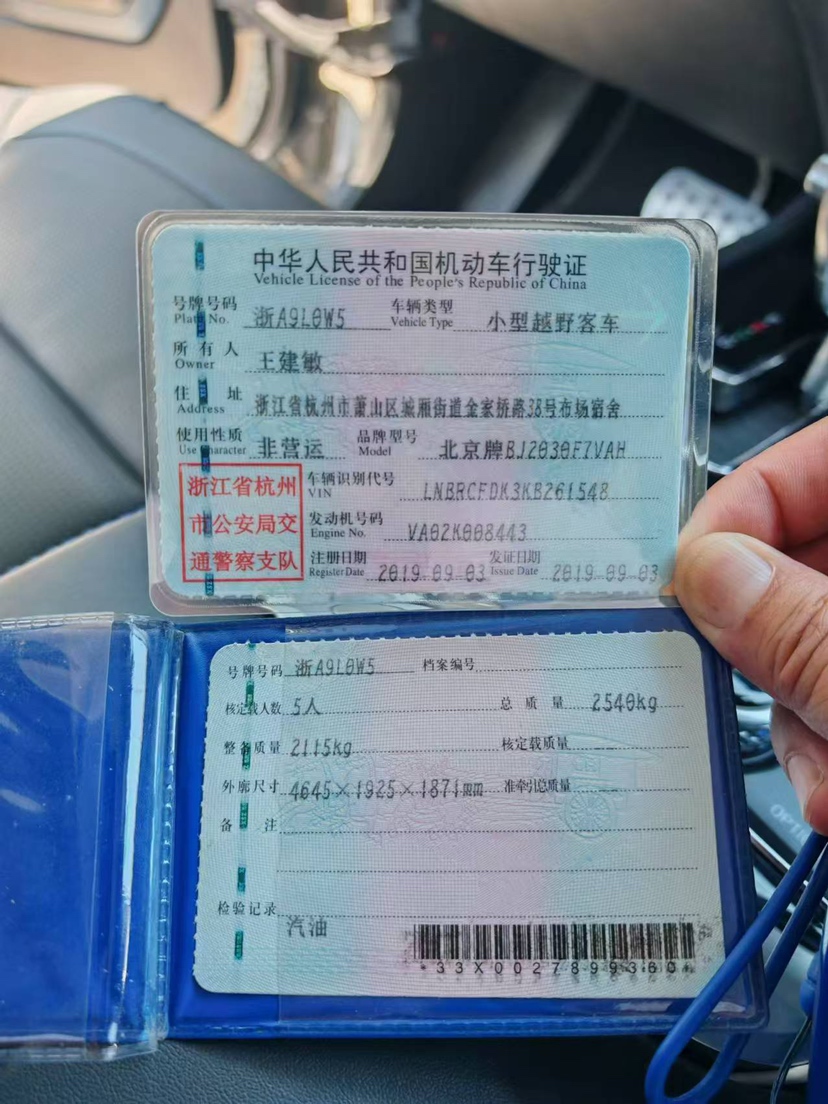 中华人民共和国机动车行驶证
Vehicle License of the People's Republic of China
号牌号码 Plate No. 浙A9L0W5 车辆类型 Vehicle Type 小型越野客车
所有人 Owner 王建敏
住址 Address 浙江省杭州市萧山区城厢街道金家桥路38号布场宿舍
使用性质 Use Character 非营运 品牌型号 Model 北京牌BJ2030F7VAH
浙江省杭州
市公安局交
通警察支队
车辆识别代号 VIN LNBRCFDK3KB261548
发动机号码 Engine No. VA02K008443
注册日期 Register Date 2019-09-03 发证日期 Issue Date 2019-09-03
号牌号码 浙A9L0W5 档案编号
核定载人数 5人 总质量 2540kg
整备质量 2115kg 核定载质量
外廓尺寸 4645×1925×1871mm 准牵引总质量
备注
检验记录
汽油
*33X0027899360*